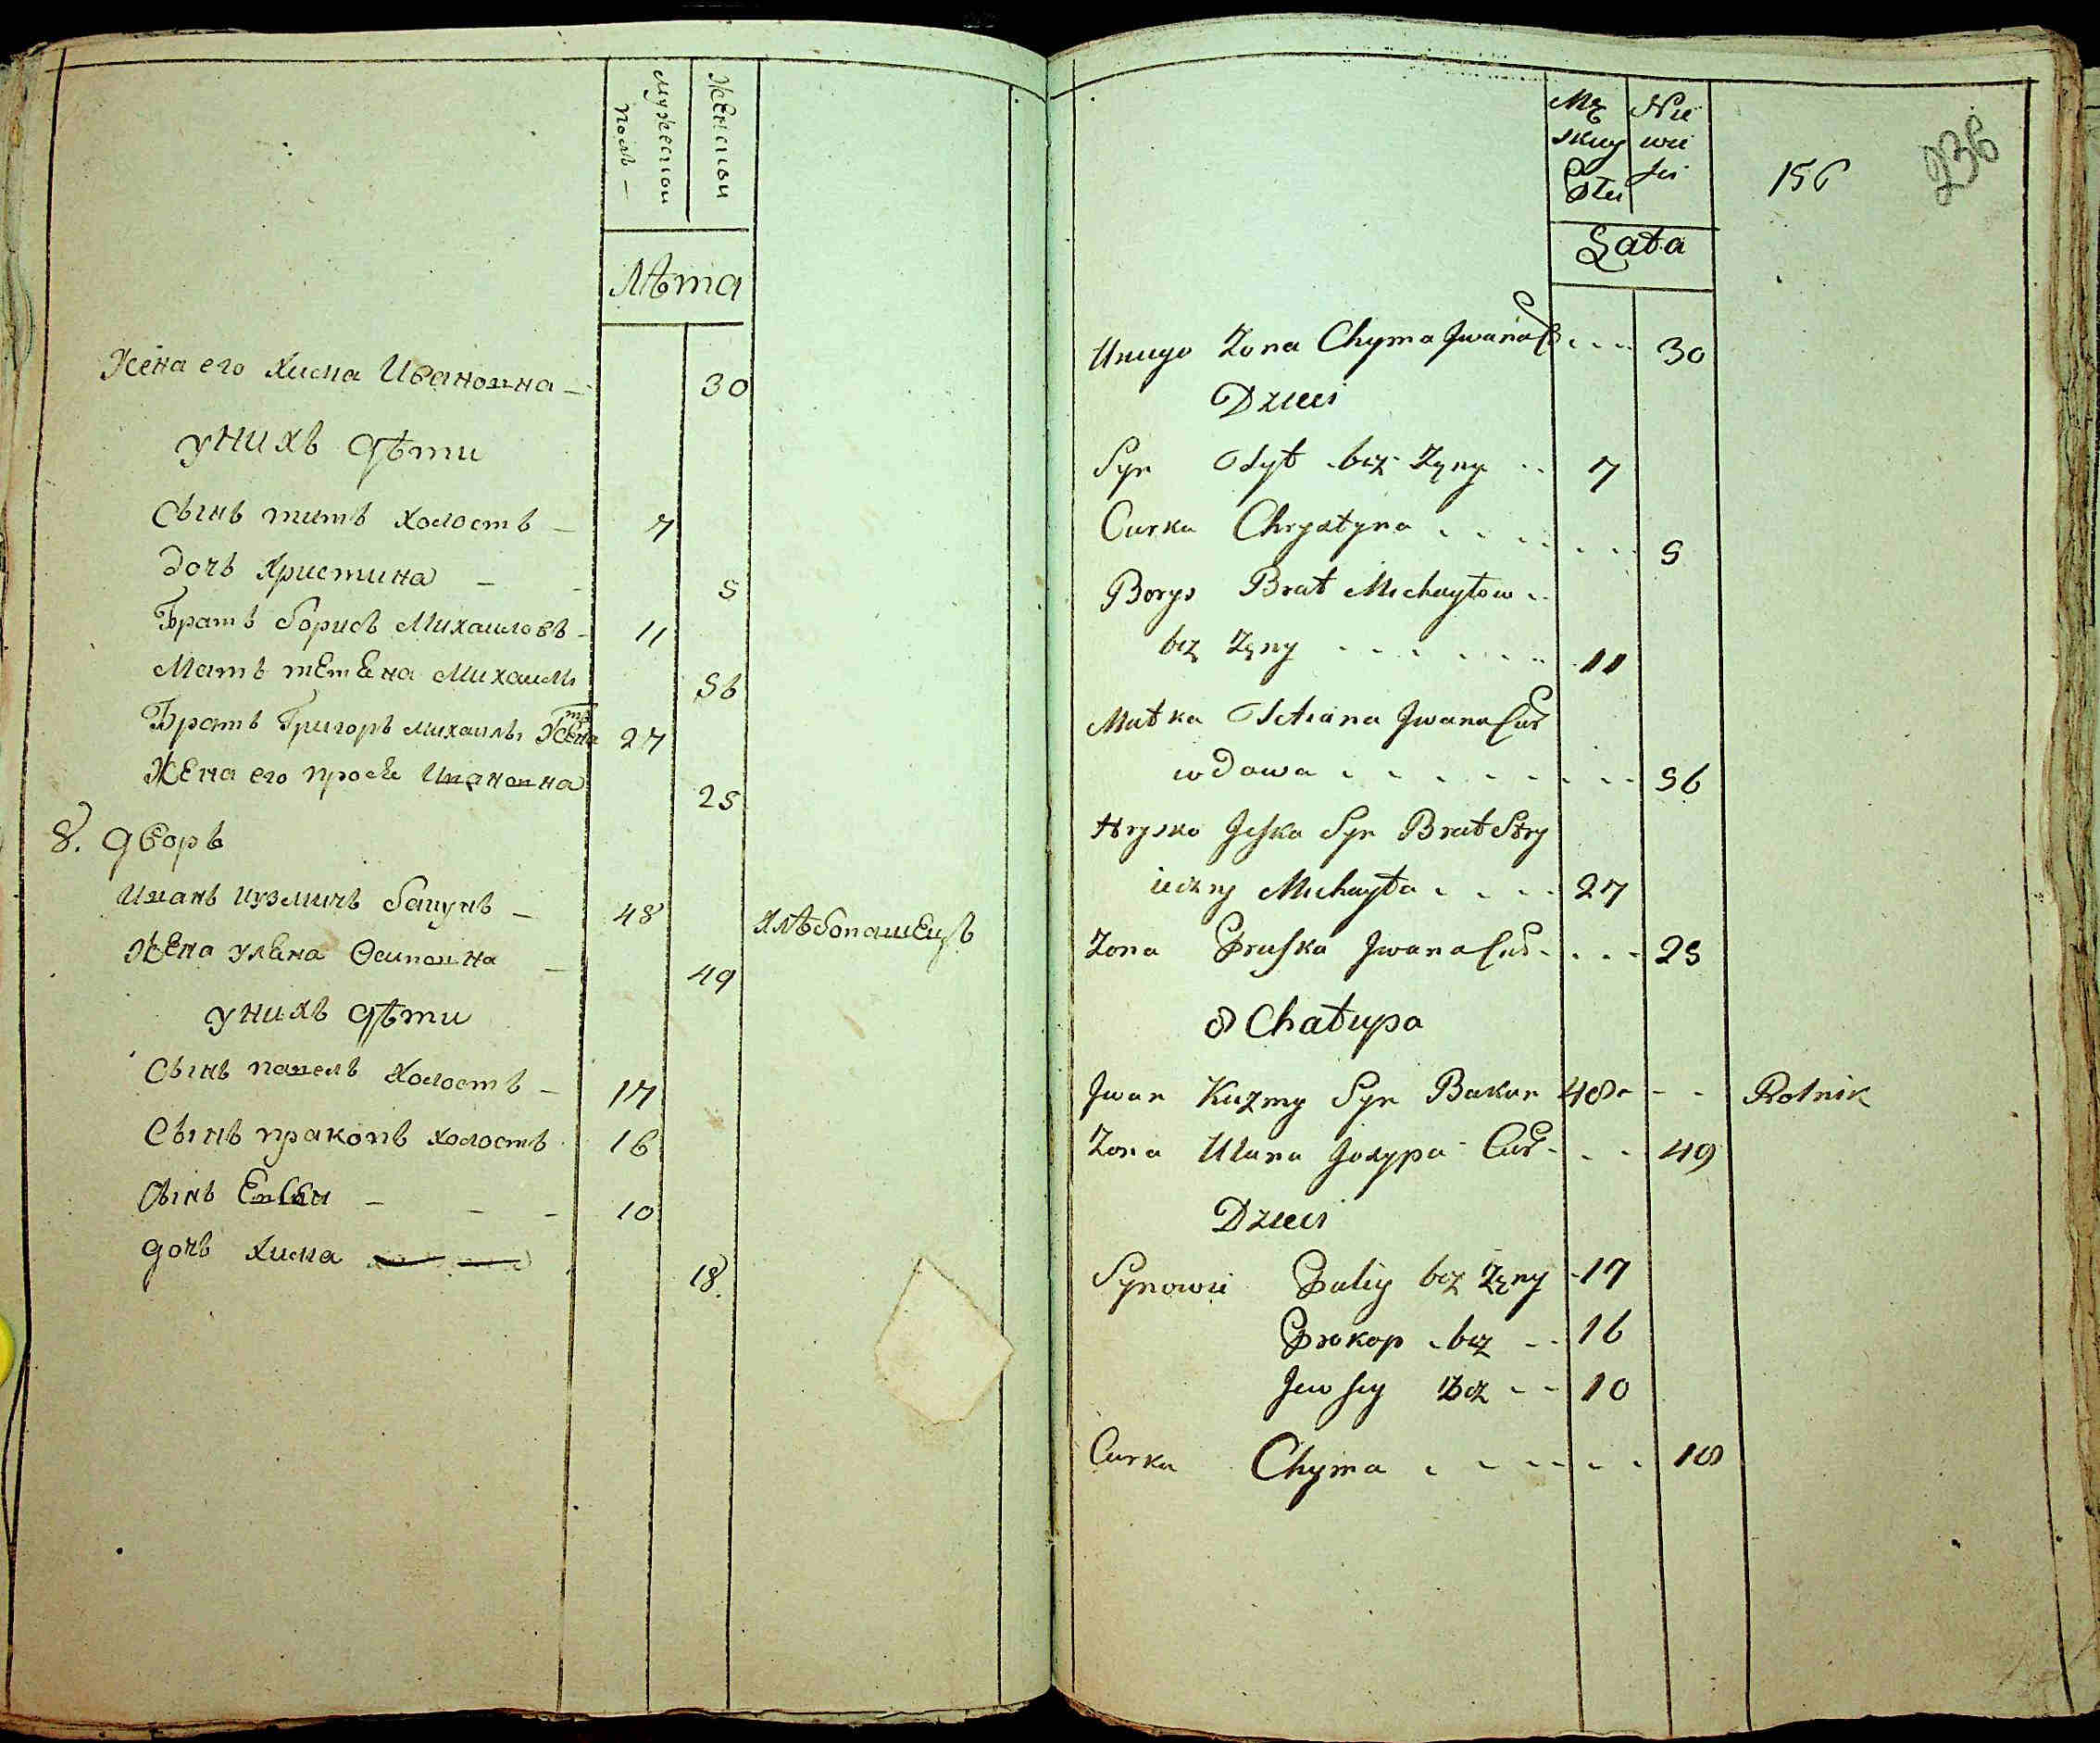 мужескои
полъ —
женскои
Лѣта
Жена его Хима Ивановна — 30
у нихъ дѣти
Сынъ титъ холостъ — 7
дочь Христина — - 5
Братъ борисъ Михаиловъ - 11
Мать тетена Михаилы 56
Братъ Григоръ михаилы 27
Жена его проске Ивановна 25
8. дворъ
Иванъ кузмичъ бакунъ — 48 хлѣбопашецъ
Жена улена Осиповна — 49
у нихъ дѣти
Сынъ павелъ холостъ — 17
Сынъ пракопъ холостъ 16
Сынъ Евсеи — - - 10
дочь хима 18.
Mę Nie
skiey wie
Płci ści
156
236
Lata
Unugo Zona Chyma Jwana C. - - - 30
Dzieci
Syn Tyt bez Zęny - - 7
Curka Chrystyna - - - - - - - 5
Borys Brat Michayłow - -
bez Zęny - - - - - - - 11
Matka Tetiana Jwana Cur
wdowa - - - - - - - - 56
Hrysko Jeśka Syn Brat Stry
ieczny Michayła - - - - 27
Zona Pruska Jwana Cur - - - - 25
8 Chałupa
Jwan Kuzmy Syn Bakun 48 - - - Rolnik
Zona Ulana Josyppa Cur - - - 49
Dzieci
Synowie Paliy bez Zęny - 17
Prokop bez - - 16
Jewsey bez - - 10
Curka Chyma - - - - - - 18